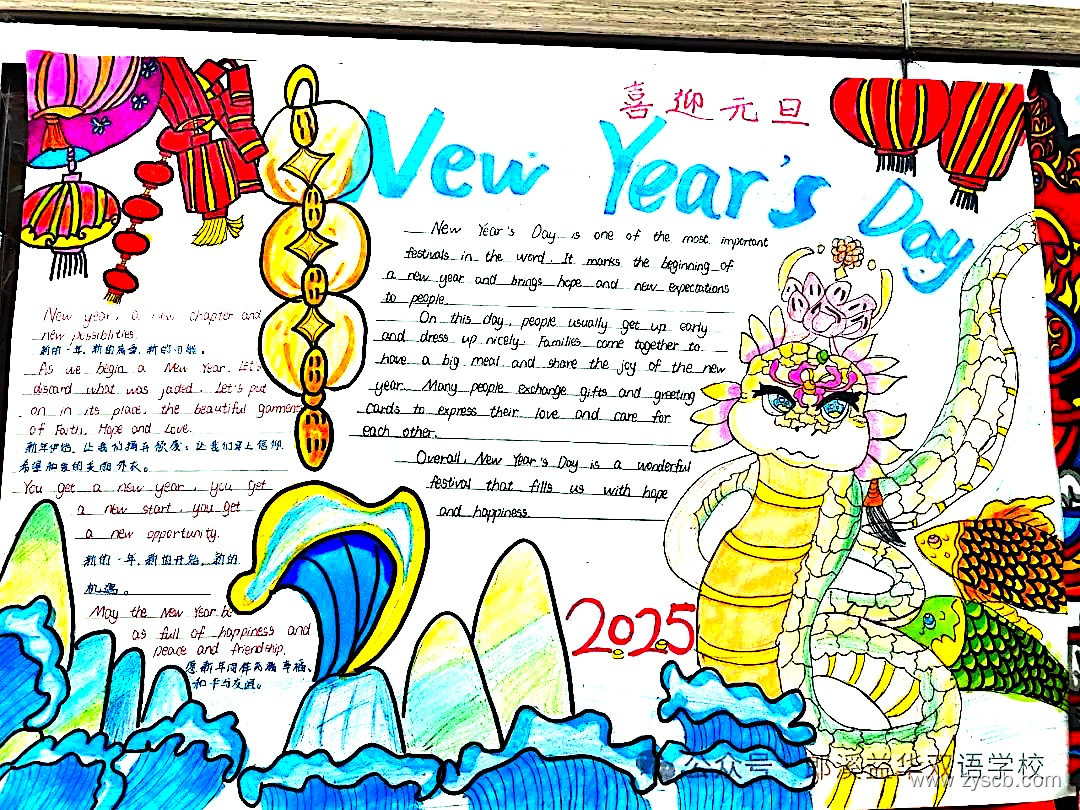 喜迎元旦
New Year's Day
New Year's Day is one of the most important
festivals in the word. It marks the beginning of
a new year and brings hope and new expectations
to people.
On this day, people usually get up early
and dress up nicely. Families come together to
have a big meal and share the joy of the new
year. Many people exchange gifts and greeting
cards to express their love and care for
each other.
Overall, New Year's Day is a wonderful
festival that fills us with hope
and happiness.
New year, a new chapter and
new possiblities.
新的一年,新的篇章,新的可能。
As we begin a New Year. Let's
discard what was jaded. Let's put
on in its place, the beautiful garment
of Faith, Hope and Love.
新年伊始,让我们摒弃
让我们穿上信仰,
希望和爱的美丽外衣。
You get a new year, you get
a new start, you get
a new opportunity.
新的一年,新的开始,新的
机遇。
May the New Year be
as full of happiness and
peace and friendship.
愿新年同样充满幸福、
和平与友谊。
2025
公众号 邢溪益华双语学校
www.zyscb.com